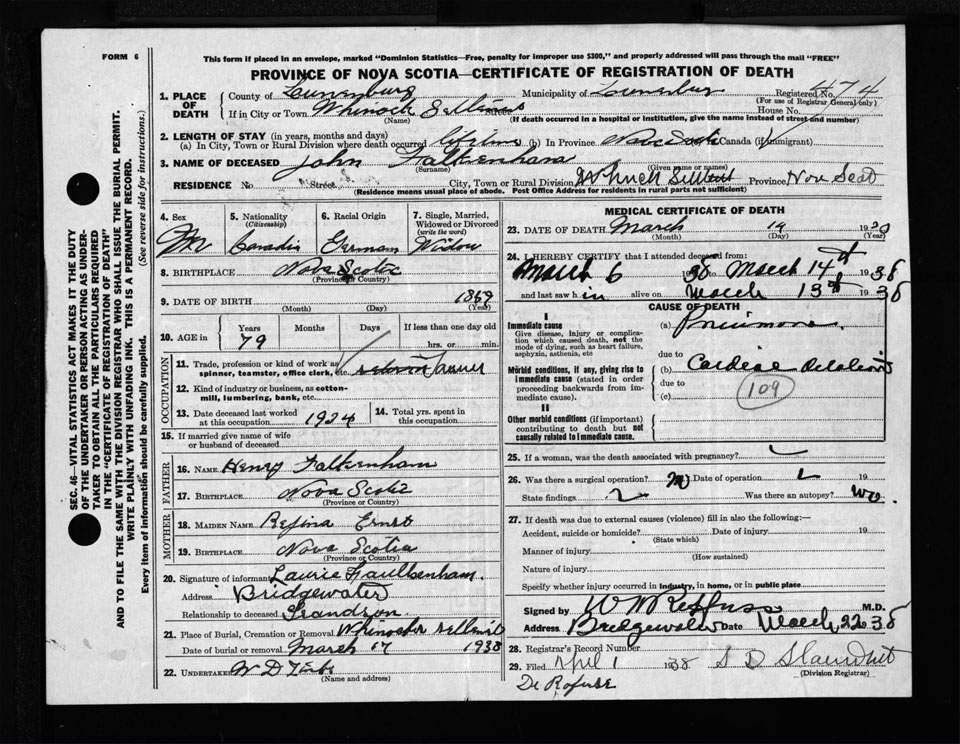 FORM 6
This form if placed in an envelope, marked "Dominion Statistics—Free, penalty for improper use $300," and properly addressed will pass through the mail "FREE"
PROVINCE OF NOVA SCOTIA—CERTIFICATE OF REGISTRATION OF DEATH
1. PLACE OF DEATH
County of Lunenburg Municipality of Lunenburg Registered No. 474
(For use of Registrar General only)
If in City or Town Street House No.
(Name) (If death occurred in a hospital or institution, give the name instead of street and number)
2. LENGTH OF STAY (in years, months and days)
(a) In City, Town or Rural Division where death occurred lifetime (b) In Province Nova Scotia Canada (if immigrant)
3. NAME OF DECEASED John Falkenham
(Surname) (Given name or names)
RESIDENCE No. Street City, Town or Rural Division Province Nov Scot
(Residence means usual place of abode. Post Office Address for residents in rural parts not sufficient)
4. Sex M
5. Nationality (Citizenship) Canadin
6. Racial Origin German
7. Single, Married, Widowed or Divorced (write the word) Widow
8. BIRTHPLACE Nova Scotia
(Province or Country)
9. DATE OF BIRTH 1869
(Month) (Day) (Year)
10. AGE in Years Months Days If less than one day old
79 hrs. or min.
OCCUPATION
11. Trade, profession or kind of work as spinner, teamster, office clerk, etc.
12. Kind of industry or business, as cotton-mill, lumbering, bank, etc.
13. Date deceased last worked at this occupation 1924
14. Total yrs. spent in this occupation
15. If married give name of wife or husband of deceased
FATHER
16. NAME Henry Falkenham
17. BIRTHPLACE Nova Scotia
(Province or Country)
MOTHER
18. MAIDEN NAME Regina Ernst
19. BIRTHPLACE Nova Scotia
(Province or Country)
20. Signature of informant Laurie Faulkenham
Address Bridgewater
Relationship to deceased Grandson
21. Place of Burial, Cremation or Removal
Date of burial or removal March 17 1938
22. UNDERTAKER W D
(Name and address)
MEDICAL CERTIFICATE OF DEATH
23. DATE OF DEATH March 14
(Month) (Day) (Year)
24. I HEREBY CERTIFY that I attended deceased from:
March 6 1938 to March 14th 1938
and last saw h im alive on March 13th 1938
CAUSE OF DEATH
I
Immediate cause
Give disease, injury or complication which caused death, not the mode of dying, such as heart failure, asphyxia, asthenia, etc
(a) Pneumonia
due to
Morbid conditions, if any, giving rise to immediate cause (stated in order proceeding backwards from immediate cause).
(b) Cardiac
due to 109
(c)
II
Other morbid conditions (if important) contributing to death but not causally related to immediate cause.
25. If a woman, was the death associated with pregnancy?
26. Was there a surgical operation? Date of operation
State findings Was there an autopsy? No.
27. If death was due to external causes (violence) fill in also the following:—
Accident, suicide or homicide? Date of injury 19
(State which)
Manner of injury
(How sustained)
Nature of injury
Specify whether injury occurred in industry, in home, or in public place
Signed by W M Reffuss M.D.
Address Bridgewater Date March 22 1938
28. Registrar's Record Number
29. Filed April 1 1938 S D
(Division Registrar)
SEC. 46—VITAL STATISTICS ACT MAKES IT THE DUTY
OF THE UNDERTAKER OR PERSON ACTING AS UNDERTAKER TO OBTAIN ALL THE PARTICULARS REQUIRED
IN THE "CERTIFICATE OF REGISTRATION OF DEATH"
AND TO FILE THE SAME WITH THE DIVISION REGISTRAR WHO SHALL ISSUE THE BURIAL PERMIT.
WRITE PLAINLY WITH UNFADING INK. THIS IS A PERMANENT RECORD.
Every item of information should be carefully supplied. (See reverse side for instructions.)